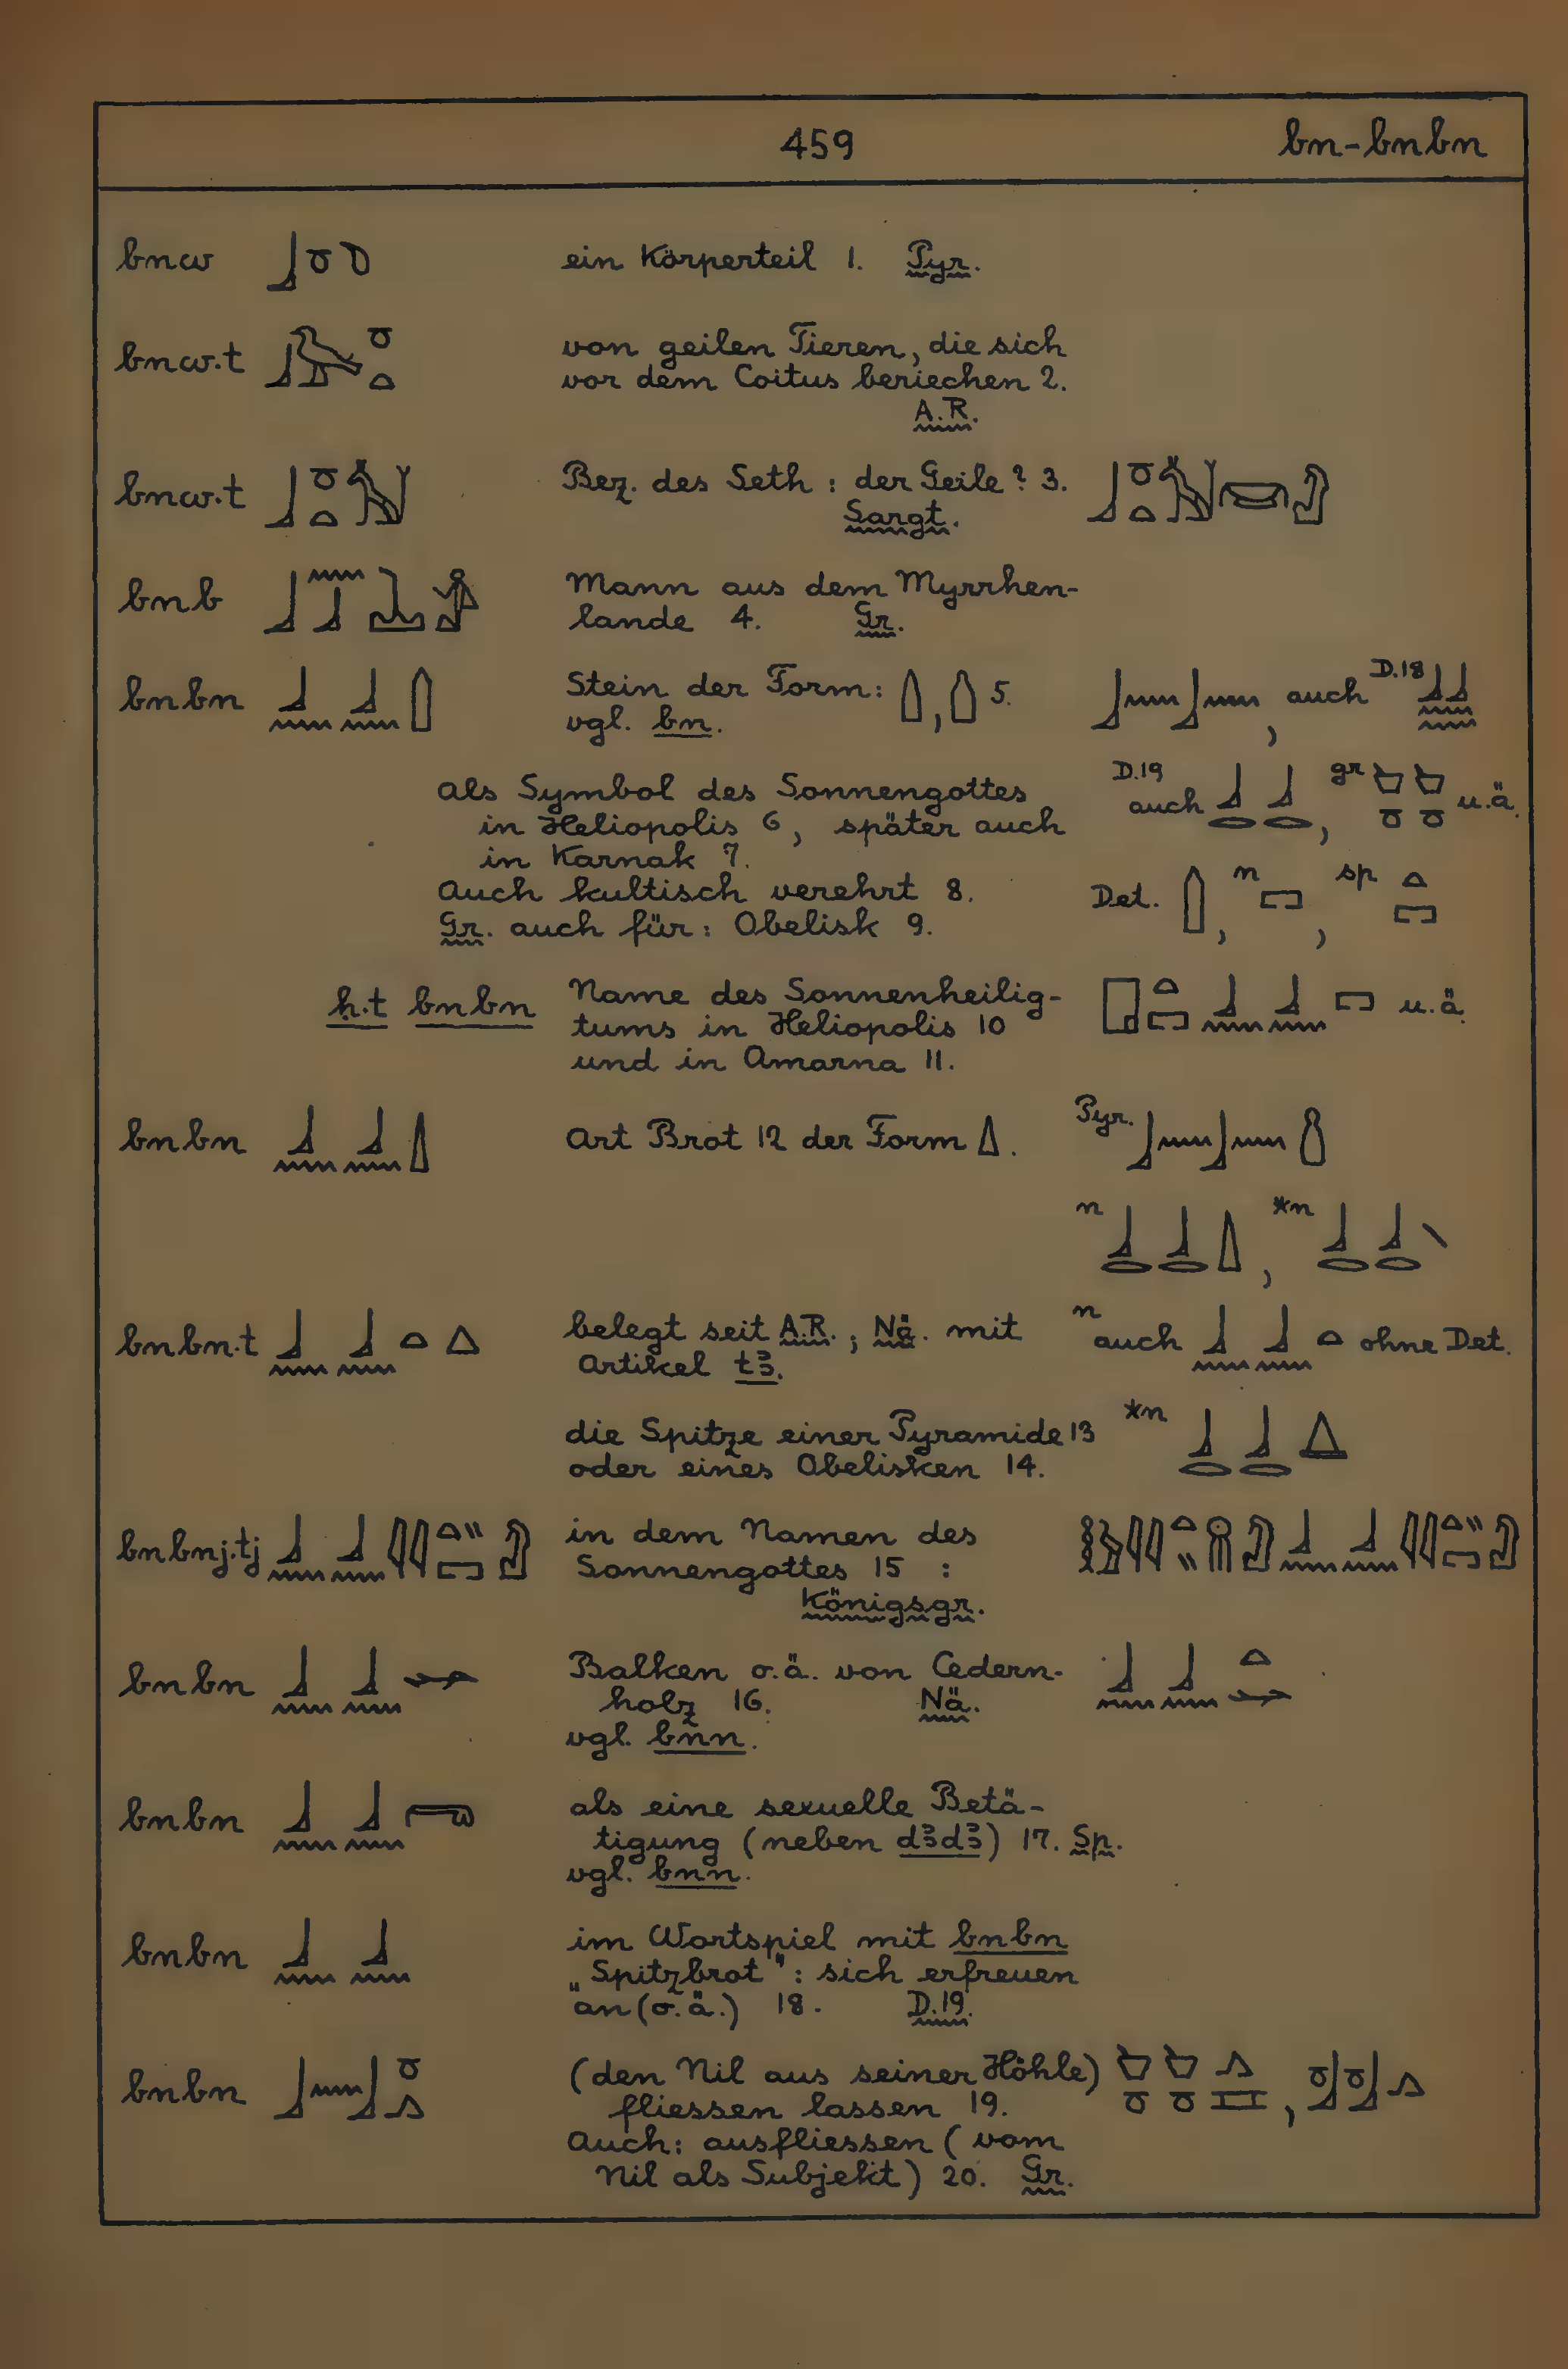 459 bn-bnbn
bnw ein Körperteil 1. Pyr.
bnw.t von geilen Tieren, die sich
vor dem Coitus beriechen 2.
A.R.
bnw.t Bez. des Seth: der Geile? 3.
Sargt.
bnb Mann aus dem Myrrhen-
lande 4. Gr.
bnbn Stein der Form: , 5. , auch D.18
vgl. bn.
als Symbol des Sonnengottes D.19 auch , gr u.ä.
in Heliopolis 6, später auch
in Karnak 7.
Auch kultisch verehrt 8. Det. , n , sp
Gr. auch für: Obelisk 9.
ḥ.t bnbn Name des Sonnenheilig- u.ä.
tums in Heliopolis 10
und in Amarna 11.
bnbn Art Brot 12 der Form . Pyr.
n , *n
bnbn.t belegt seit A.R.; Nä. mit n auch ohne Det.
Artikel tꜣ.
die Spitze einer Pyramide 13 *n
oder eines Obelisken 14.
bnbnj.tj in dem Namen des
Sonnengottes 15 :
Königsgr.
bnbn Balken o.ä. von Cedern-
holz 16. Nä.
vgl. bnn.
bnbn als eine sexuelle Betä-
tigung (neben dꜣdꜣ) 17. Sp.
vgl. bnn.
bnbn im Wortspiel mit bnbn
„Spitzbrot": sich erfreuen
an (o.ä.) 18. D.19.
bnbn (den Nil aus seiner Höhle) ,
fliessen lassen 19.
Auch: ausfliessen (vom
Nil als Subjekt) 20. Gr.